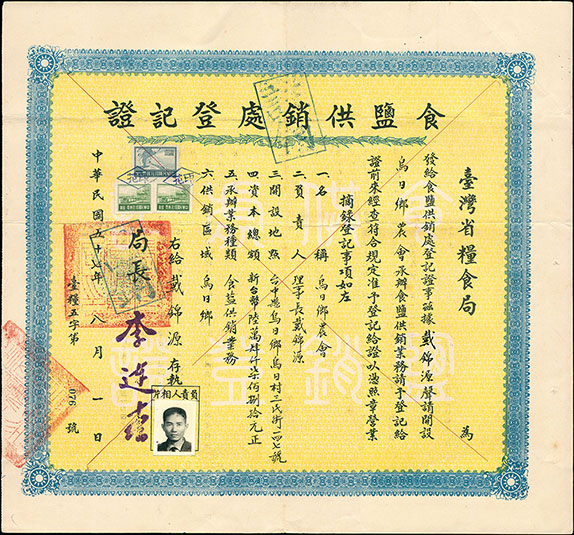 食鹽供銷處登記證
臺灣省糧食局
為
發給食鹽供銷處登記證事茲據戴錦源聲請開設
烏日鄉農會承辦食鹽供銷業務請予登記給
證前來經查符合規定准予登記給證以憑照章營業
摘錄登記事項如左
一、名稱 烏日鄉農會
二、負責人 理事長戴錦源
三、開設地點 台中縣烏日鄉烏日村三民街一四七號
四、資本總額 新台幣陸萬肆仟柒佰捌拾元正
五、承辦業務種類 食鹽供銷業務
六、供銷區域 烏日鄉
右給戴錦源存執
負責人相片
局長 李連春
中華民國五十七年八月一日
臺糧五字第076號